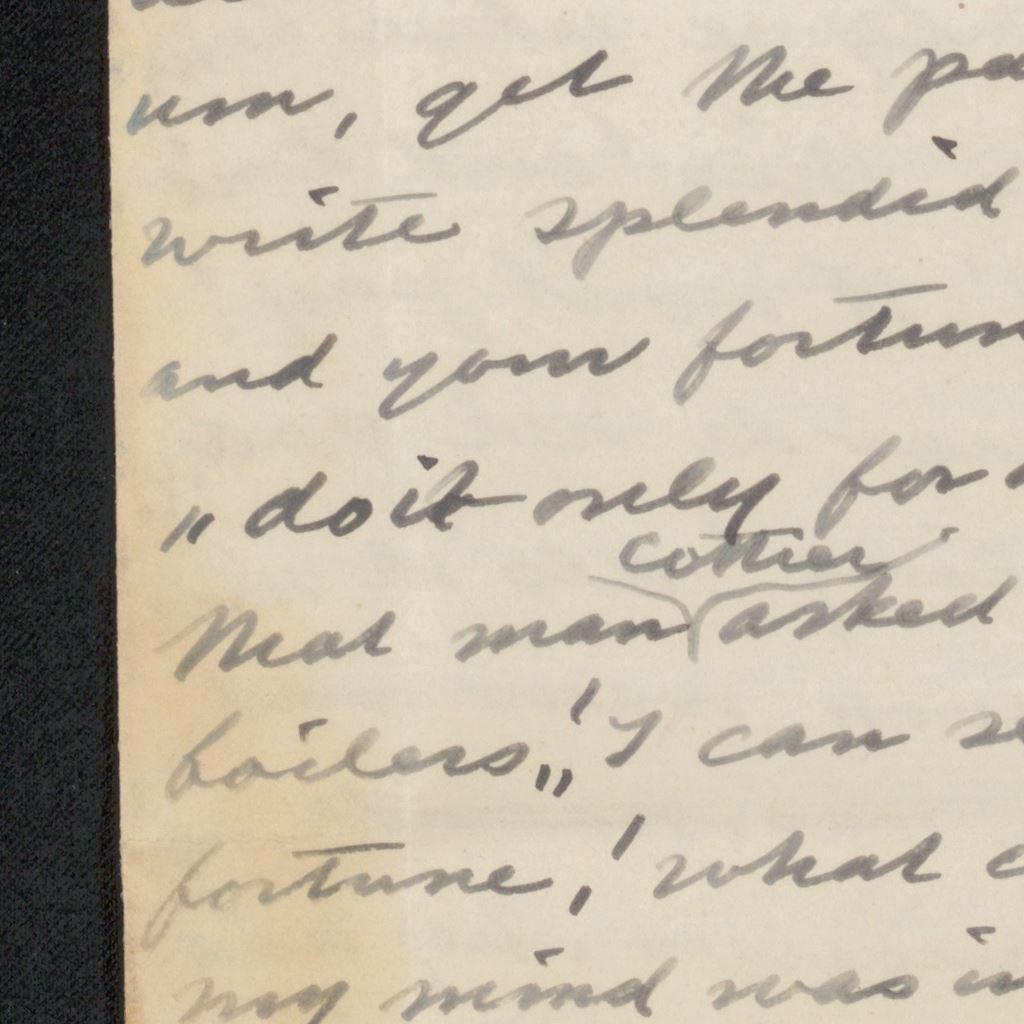 um, get the pa
write splendid
and your fortun
„ do it only for
Cottier
that man asked
boilers„! I can se
fortune,! what c
my mind was in